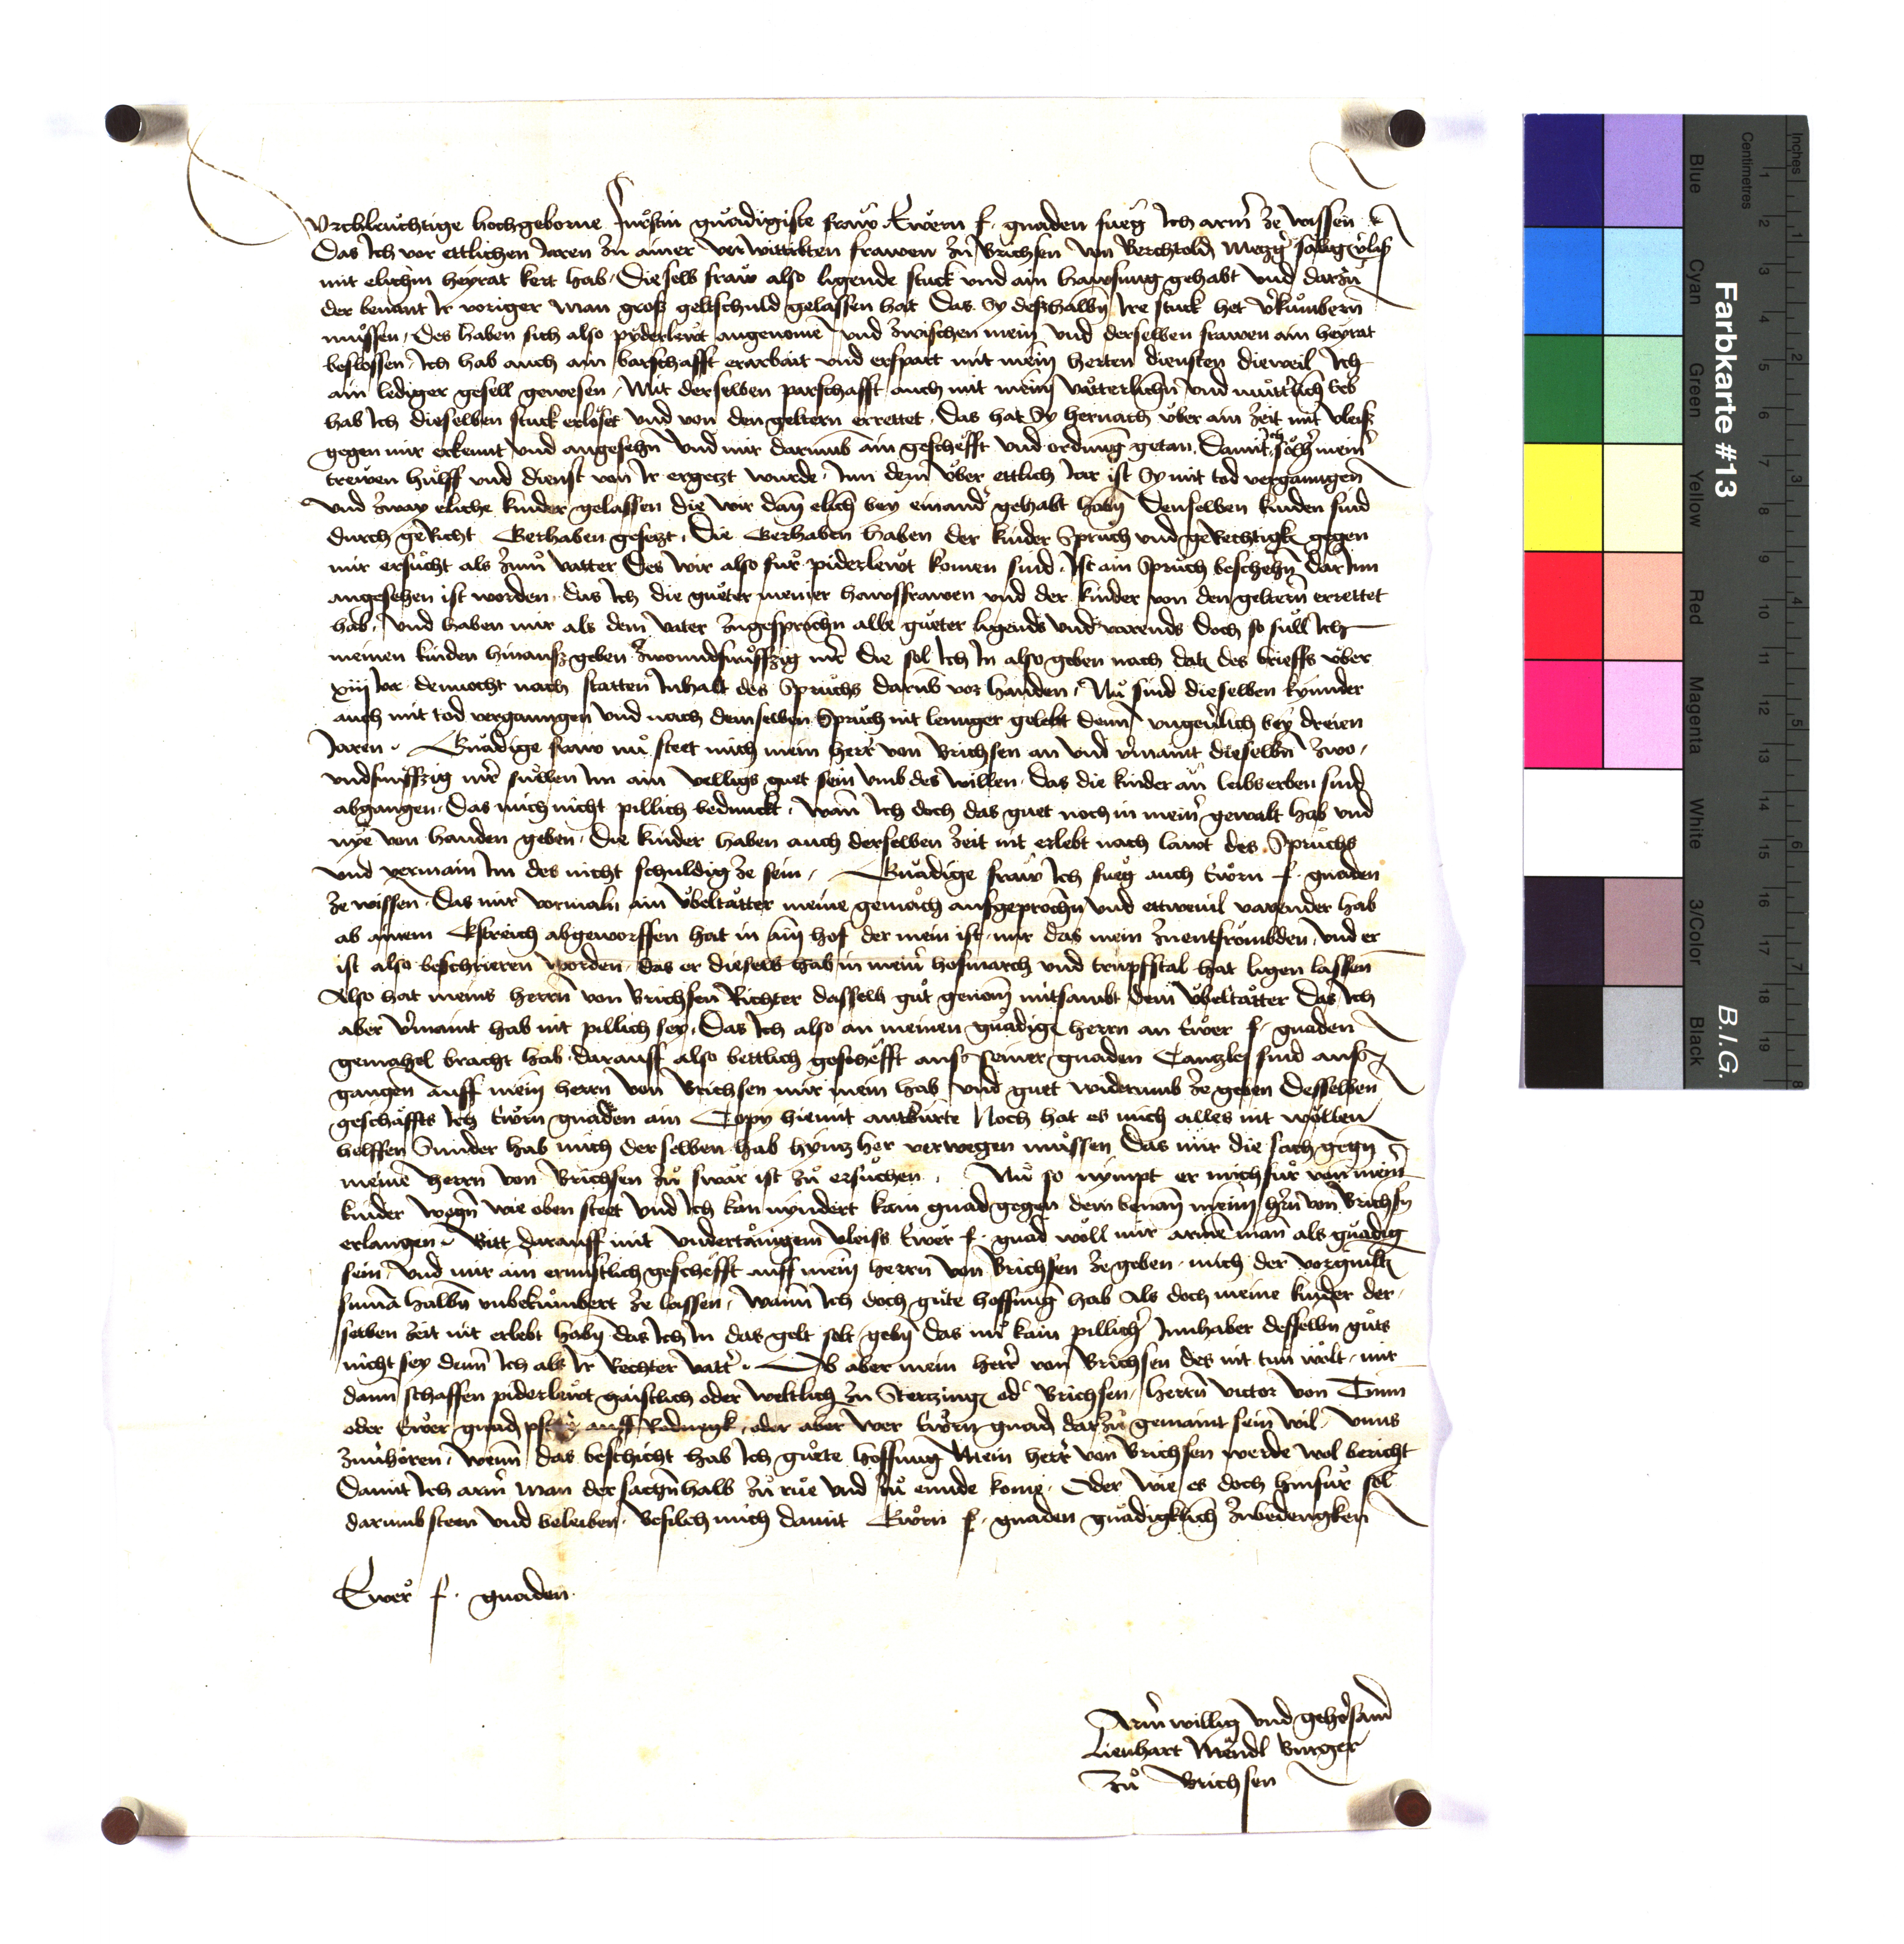 Durchleuchtige hochgeborne Furstin gnädigiste fraw Ewern f. gnaden fueg Ich armer ze wissen
Das Ich vor ettlichen Jaren zu ainer verwittibten frawen zu Brichsen von Berchtold Metzger
mit elichm heyrat kert hab. Dieselb fraw also ligende stuck und ain hawsung gehabt und darzu
der benant Ir voriger man gros geltschuld gelassen hat Das Sy deshalbn Ire stuck het verkumbern
müssen. Des haben sich also pyderlewt angenome und zwischen mein und derselben frawen ain heyrat
beslossen. Ich hab auch ain barschafft erarbait und erspart mit mein herten diensten dieweil Ich
ain lediger gesell gewesen. Mit derselben parschafft auch mit meim vätterlichn und mütterlich erb
hab Ich dieselben stuck erlöset und von den geltern errettet. Das hat Sy hernach über ain zeit mit vleis
gegen mir erkennt und angesehn und mir darumb ain geschefft und ordnung getan. Damit ich sölher meiner
trewen hulff und dienst von Ir ergetzt wurde. Inn dem über ettlich Jar ist Sy mit tod vergangen
Und zway eliche kinder gelassen die wir dan elich bey einander gehabt habn Denselben kinden sind
durch geRicht Gerhaben gesetzt. Die Gerhaben haben der kinder Spruch und geRechtigk gegen
mir ersucht als zum vatter Des wir also für piderlewt komen sind. Ist ain Spruch beschehn darInn
angesehen ist worden. das Ich die gueter meiner hawsfrawen und der kinder von den geltern errettet
hab. Und haben mir als dem vater zugesprochn alle gueter ligends und varends doch so sull Ich
meinen kinden hinausz geben zwoundfunffzig mr die sol Ich In also geben nach dat des brieffs über
xiij Jar dennocht nach statten Inhalt des Spruchs darumb vor handen. Nu sind dieselben kynnder
auch mit tod vergangen und nach demselben Spruch nit lenger gelebt denn ungeverlich bey dreien
Jaren. Gnädige fraw nu steet mich mein herr von Brichsen an und vermaint dieselbn zwo
undfunffzig mr sullen Im ain velligs guet sein umb des willen. Das die kinder an leibs erben sind
abgangen. Das mich nicht pillich bedunckt. wann Ich doch das guet noch in meiner gewalt hab und
nye von handen geben. Die kinder haben auch derselben zeit nit erlebt nach lawt des Spruchs
und vermain Im des nicht schuldig ze sein. Gnädige fraw Ich fueg auch Ewrn f. gnaden
ze wissen. Das mir vormaln ain übeltätter meine gemäch aufgeprochn und ettwevil varender hab
ab ainem Estreich abgeworffen hat in ain hof der mein ist. mir das mein zuentfrömbden. und er
ist also beschrieren worden. das er dieselb hab in meiner hofmarch und trupfstal hat ligen lassen
Also hat meins herrn von Brichsen Richter dasselb gut genom mitsambt dem übeltätter Das Ich
aber vermaint hab nit pillich sey. Das Ich also an meinen gnädigen herrn an Ewer f. gnaden
gemahel bracht hab. darauff also bettlich geschefft aus seiner gnaden Cantzley sind aus
gangen auff mein herrn von Brichsen mir mein hab und guet widerumb ze geben Desselben
geschäffts Ich Ewrn gnaden ain Copy hiemit antwurte Noch hat es mich alles nit wöllen
helffen Sunder hab mich derselben hab hyntz her verwegen müssen Das mir die sach gegn
meine herrn von Brichsen zu swär ist zu ersuchen. Nu so nympt er mich für von meiner
kinder wegn wie oben steet und Ich kan nyndert kain gnad gegen dem benan meim hrn von Brichsn
erlangen. Bitt darauff mit undertänigem vleiss Ewer f. gnad wöll mir arme man als gnädig
sein. und mir ain ernnstlich geschefft auff mein herrn von Brichsen ze geben. mich der
suma halbn unbekümbert ze lassen. wann Ich doch gute hoffnung hab Als doch meine kinder der
selben zeit nit erlebt habn das Ich In das gelt solt gebn das nu kain pillicher Innhaber desselbn guts
nicht sey denn Ich als Ir Rechter vatter. Ob aber mein herr von Brichsen des nit tun wolt. mir
dann schaffen piderlewt gaistlich oder weltlich zu Stertzing oder Brichsen. herrn victor von Tunn
oder Ewer gnad auff Rodnegk. oder aber wer Ewrn gnad darzu gemaint sein wil. unns
zuuhören. wenn das beschicht hab Ich guete hoffnung Mein herr von Brichsen werde wol bericht
Damit Ich armer man der sachn halb zu rue und zu ennde kome. Oder wie es doch hinfur sol
darumb steen und beleiben. Befilch mich damit Ewrn f. gnaden gnädigklich zubedengken
Ewer f. gnaden
Armer willig und gehorsamer
Lienhart Mändl Burger
zu Brichsen
Farbkarte #13
B.I.G.
Blue
Cyan
Green
Yellow
Red
Magenta
White
3/Color
Black
Centimetres
Inches
1 2 3 4 5 6 7 8 9 10 11 12 13 14 15 16 17 18 19
1 2 3 4 5 6 7 8